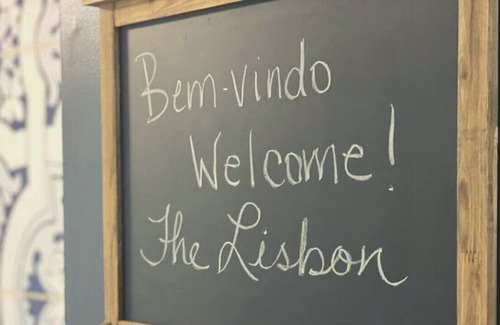 Bem-vindo
Welcome!
The Lisbon